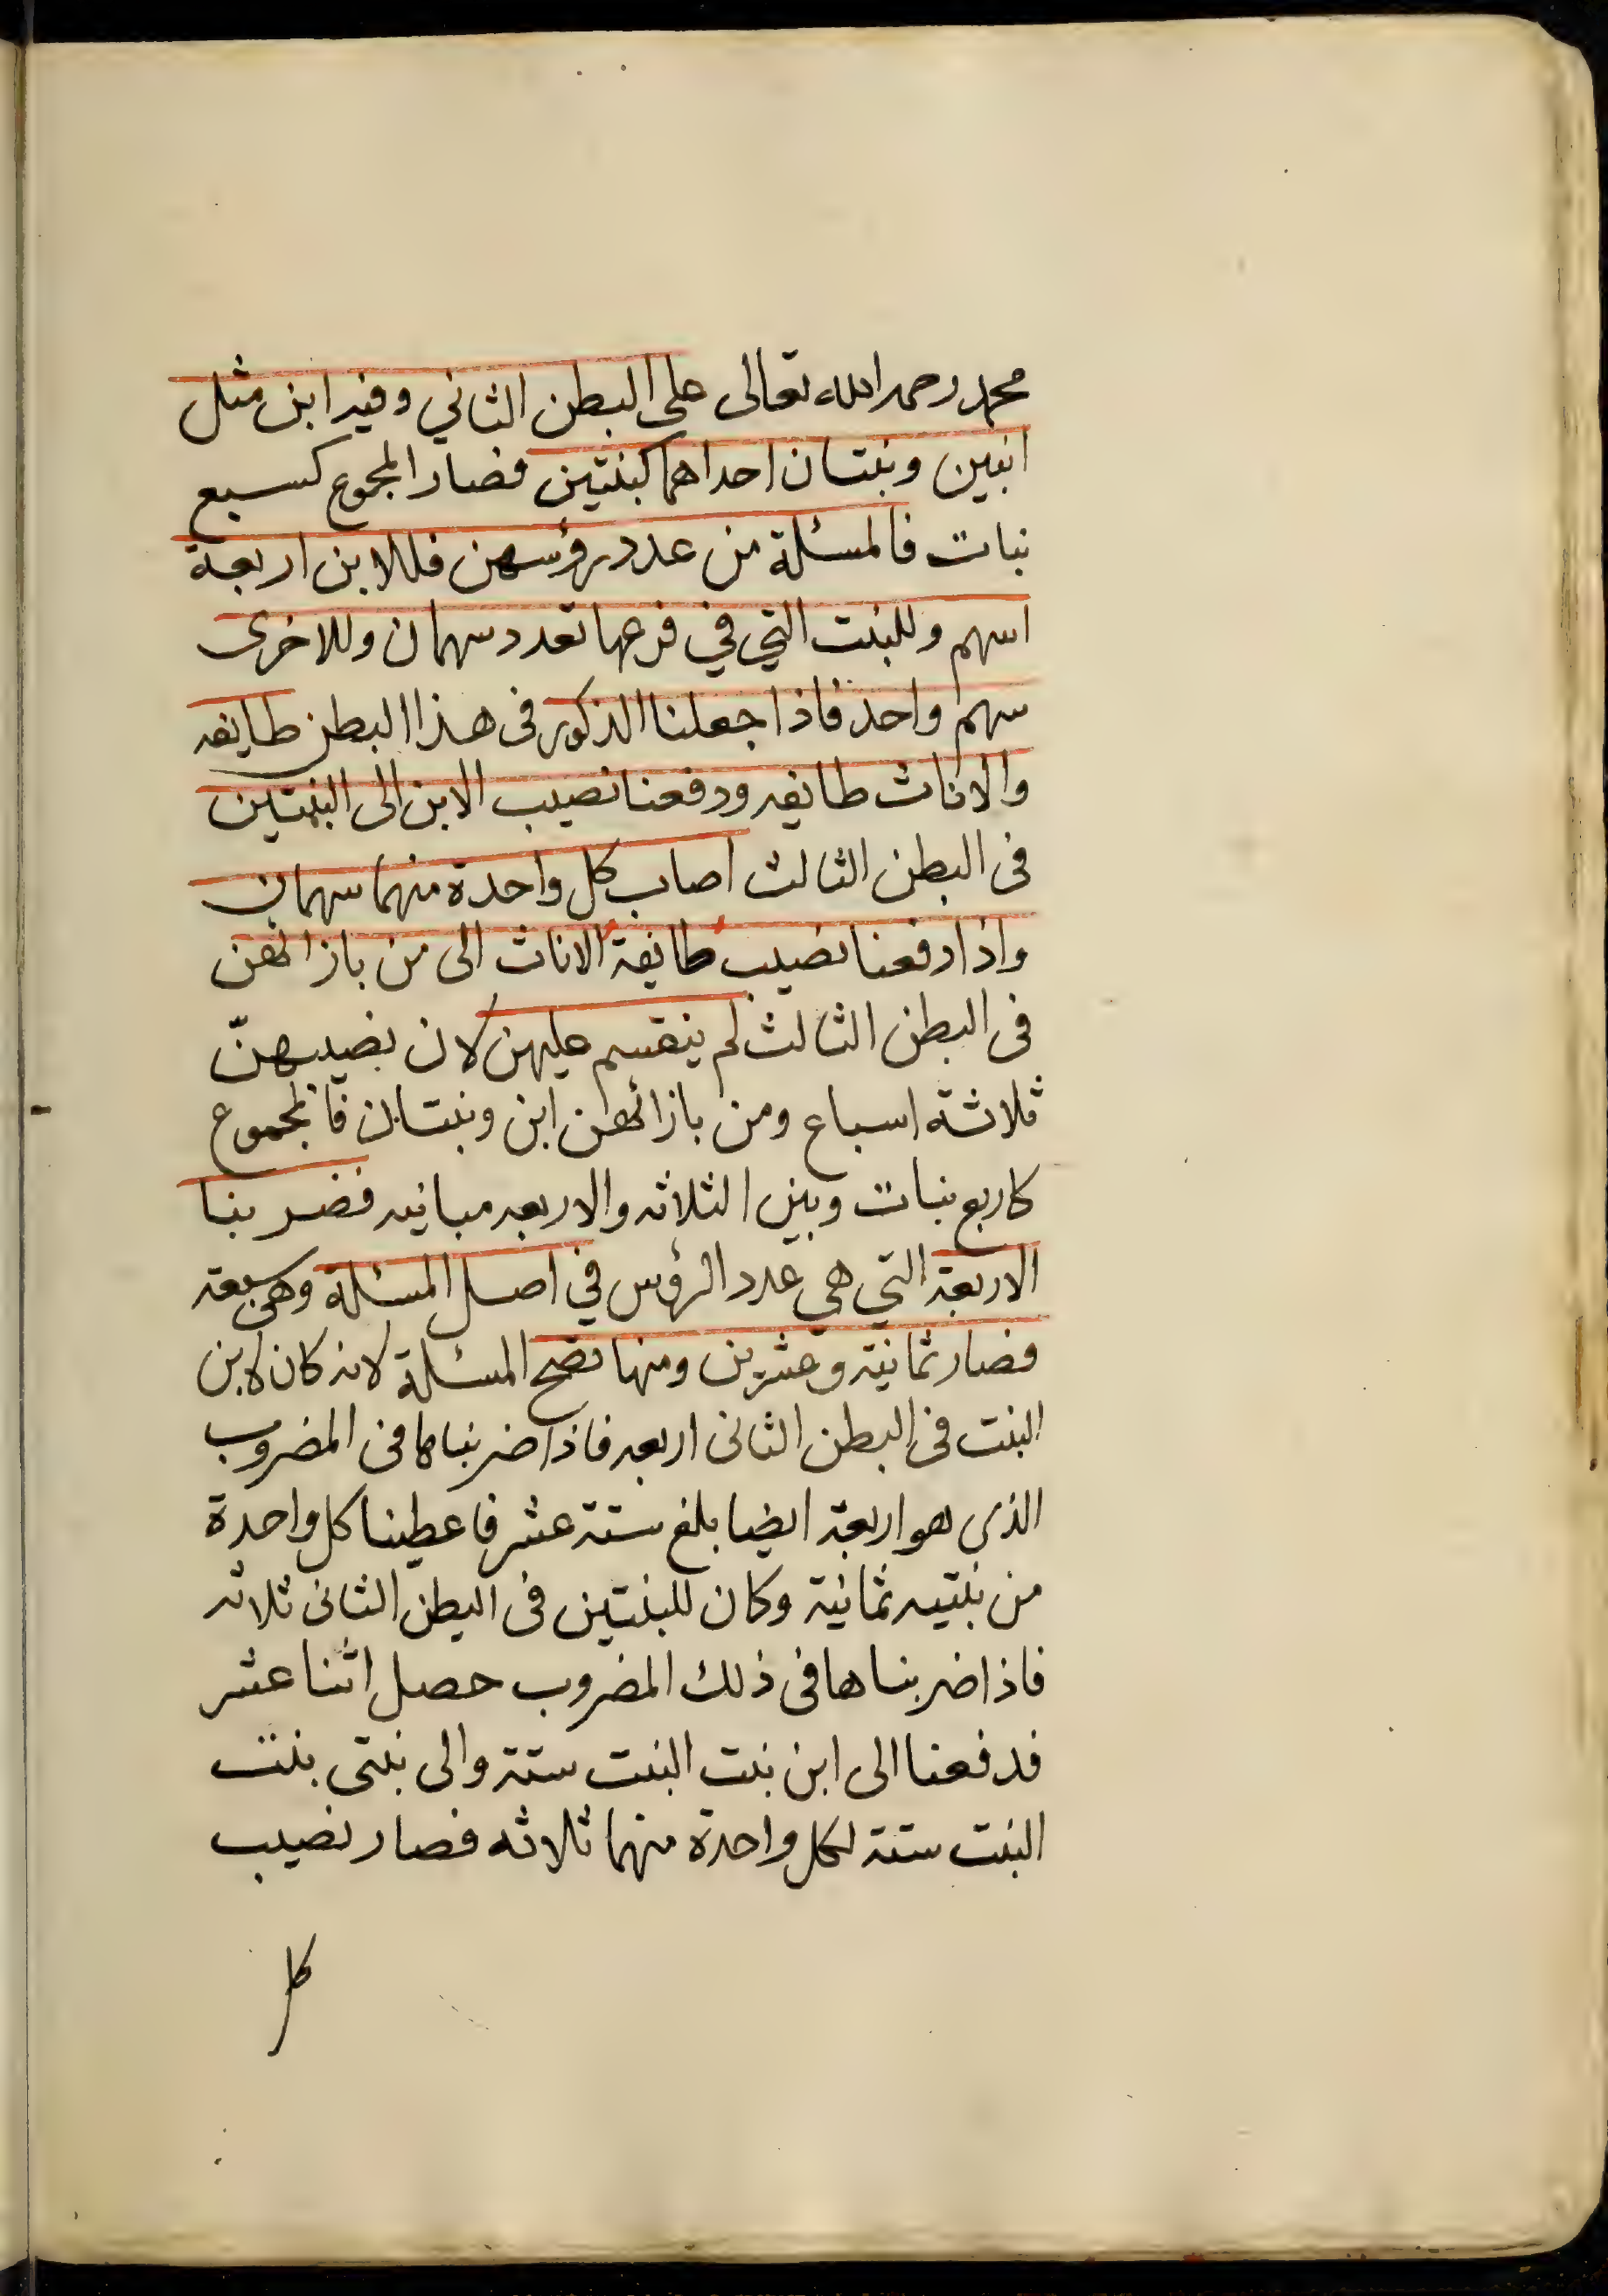 محمد رحمه الله تعالى على البطن الثاني وفيه ابن مثل
ابنين وبنتان احداهما كبنتين فصار المجموع كسبع
بنات فالمسئلة من عدد رؤسهن فللابن اربعة
اسهم وللبنت التي في فرعها تعدد سهمان وللاخرى
سهم واحد فاذا جعلنا الذكور فى هذا البطن طايفه
والاناث طايفه ودفعنا نصيب الابن الى البنتين
فى البطن الثالث اصاب كل واحدة منهما سهمان
واذا دفعنا نصيب طايفة الاناث الى من بازائهن
فى البطن الثالث لم ينقسم عليهن لان نصيبهنّ
ثلاثة اسباع ومن بازائهن ابن وبنتان فالمجموع
كاربع بنات وبين الثلاثه والاربعه مباينه فضربنا
الاربعة التي هي عدد الرؤس في اصل المسئلة وهى سبعة
فصار ثمانية وعشرين ومنها تصح المسئلة لانه كان لابن
البنت فى البطن الثانى اربعه فاذا ضربناها فى المضروب
الذى هو اربعة ايضا بلغ ستة عشر فاعطينا كل واحدة
من بنتيه ثمانية وكان للبنتين فى البطن الثانى ثلاثه
فاذا ضربناها فى ذلك المضروب حصل اثنا عشر
فدفعنا الى ابن بنت البنت ستة والى بنتى بنت
البنت ستة لكل واحدة منهما ثلاثه فصار نصيب
كل